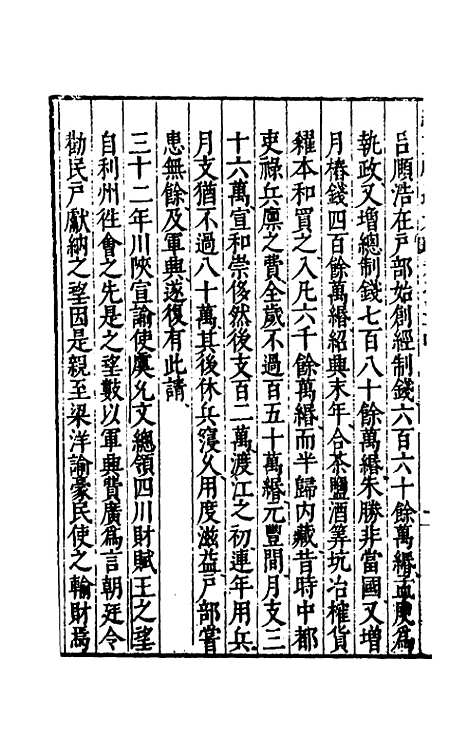 呂頤浩在戸部始創經制錢六百六十餘萬緡孟庾爲
執政又增總制錢七百八十餘萬緡朱勝非當國又增
月樁錢四百餘萬緡紹興末年合茶鹽酒筭坑冶榷貨
糴本和買之入凡六千餘萬緡而半歸内藏昔時中都
吏祿兵廪之費全歲不過百五十萬緡元豐間月支三
十六萬宣和崇侈然後支百二萬渡江之初連年用兵
月支猶不過八十萬其後休兵寖久用度滋益戸部嘗
患無餘及軍興遂復有此請
三十二年川陜宣諭使虞允文總領四川財賦王之望
自利州徃會之先是之望數以軍興費廣爲言朝廷令
勸民戸獻納之望因是親至梁洋諭豪民使之輸財焉